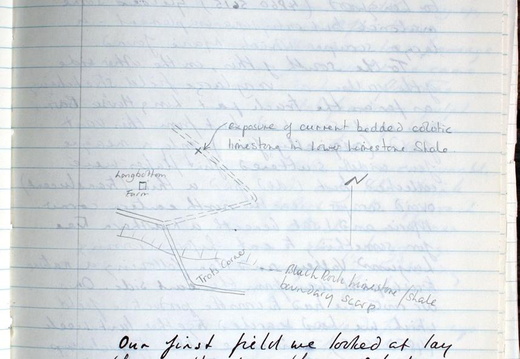 exposure of current bedded oolitic
limestone in Lower Limestone Shale
Longbottom
Farm
N
Trots Corner
Black Rock Limestone/shale
boundary scarp
Our first field we looked at lay